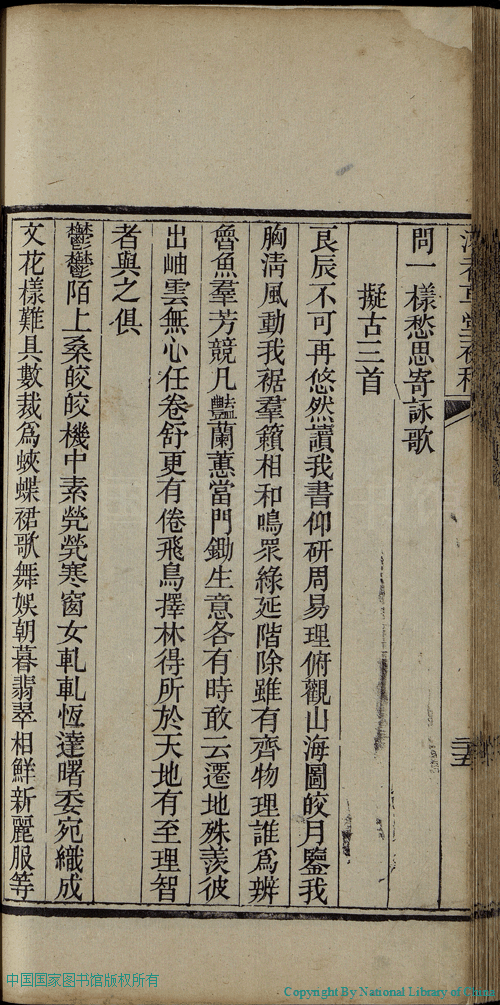 問一樣愁思寄詠歌
擬古三首
良辰不可再悠然讀我書仰研周易理俯觀山海圖皎月鑒我
胸淸風動我裾羣籟相和鳴眾綠延階除雖有齊物理誰為辨
魯魚羣芳競凡豔蘭蕙當門鋤生意各有時敢云遷地殊羨彼
出岫雲無心任卷舒更有倦飛鳥擇林得所於天地有至理智
者與之俱
鬱鬱陌上桑皎皎機中素煢煢寒窗女軋軋恆達曙委宛織成
文花樣難具數裁為蛺蝶裙歌舞娛朝暮翡翠相鮮新麗服等
中国国家图书馆版权所有
Copyright By National Library of China